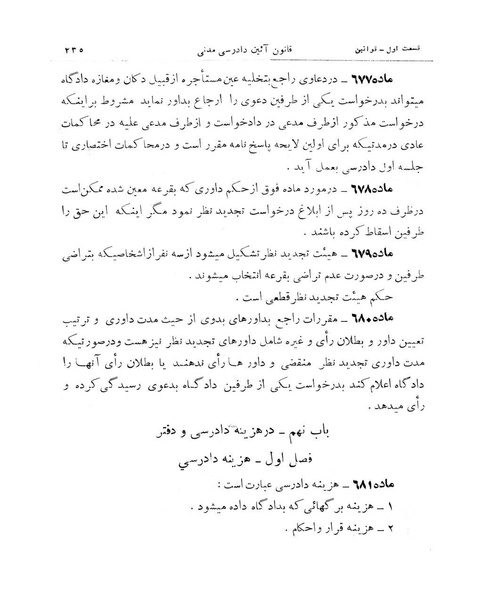 قسمت اول ـ قوانین قانون آئین دادرسی مدنی ۲۳۵
ماده ۶۷۷ ـ دردعاوی راجع بتخلیه عین مستأجره از قبیل دکان ومغازه دادگاه
میتواند بدرخواست یکی از طرفین دعوی را ارجاع بداور نماید مشروط براینکه
درخواست مذکور ازطرف مدعی در دادخواست و ازطرف مدعی علیه در محاکمات
عادی درمدتیکه برای اولین لایحه پاسخ نامه مقرر است و درمحاکمات اختصاری تا
جلسه اول دادرسی بعمل آید .
ماده ۶۷۸ ـ درمورد ماده فوق از حکم داوری که بقرعه معین شده ممکن است
درظرف ده روز پس از ابلاغ درخواست تجدید نظر نمود مگر اینکه این حق را
طرفین اسقاط کرده باشند .
ماده ۶۷۹ ـ هیئت تجدید نظر تشکیل میشود ازسه نفر ازاشخاصیکه بتراضی
طرفین و درصورت عدم تراضی بقرعه انتخاب میشوند .
حکم هیئت تجدید نظر قطعی است .
ماده ۶۸۰ ـ مقررات راجع بداورهای بدوی از حیث مدت داوری و ترتیب
تعیین داور و بطلان رأی و غیره شامل داورهای تجدید نظر نیز هست ودرصورتیکه
مدت داوری تجدید نظر منقضی و داور ها رأی ندهند یا بطلان رأی آنها را
دادگاه اعلام کند بدرخواست یکی از طرفین دادگاه بدعوی رسیدگی کرده و
رأی میدهد .
باب نهم ـ درهزینه دادرسی و دفتر
فصل اول ـ هزینه دادرسی
ماده ۶۸۱ ـ هزینه دادرسی عبارت است :
۱ ـ هزینه برگهائی که بدادگاه داده میشود .
۲ ـ هزینه قرار واحکام .